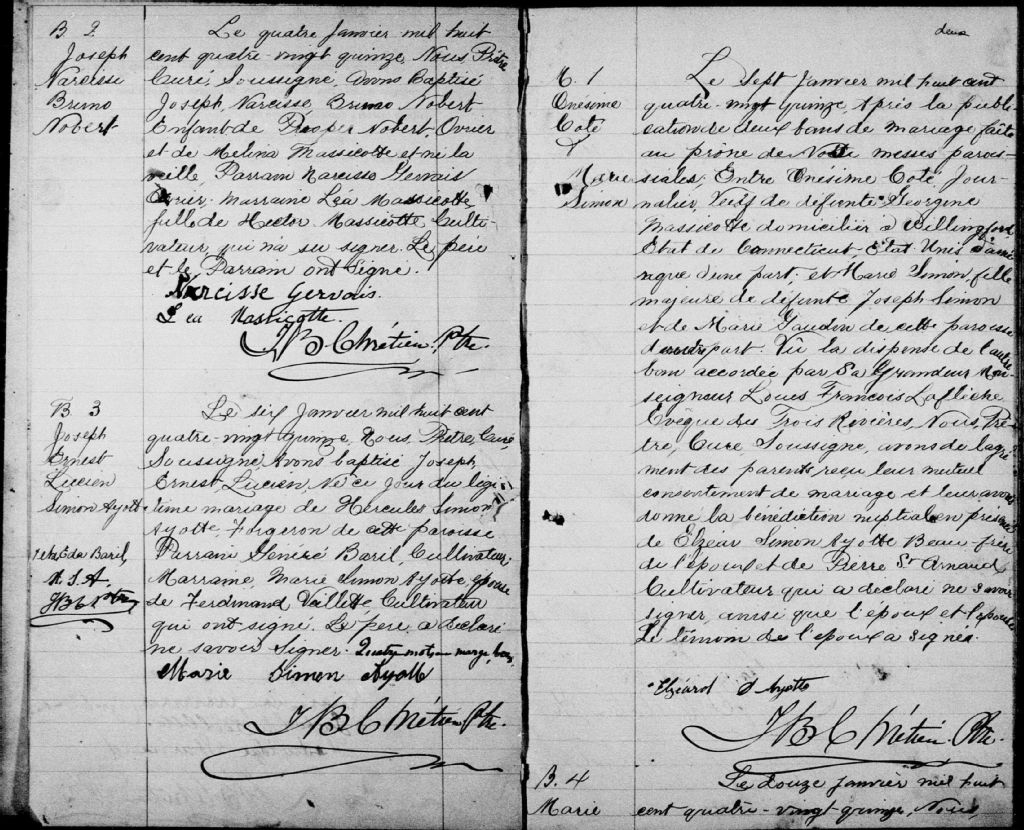 B 2
Joseph
Narcisse
Bruno
Nobert
Le quatre janvier mil huit
cent quatre-vingt quinze, Nous Prêtre
Curé, Soussigné, avons Baptisé
Joseph, Narcisse, Bruno Nobert
Enfant de Prosper Nobert Ovrier
et de Melina Massicotte et né la
veille Parrain Narcisse Gervais
Ovrier, Marraine Léa Massicotte
fille de Hector Massicotte Culti-
vateur, qui n'a su signer. Le père
et le Parrain ont signé.
Narcisse Gervais.
Lea Massicotte.
J B Chrétien Ptre.
B 3
Joseph
Ernest
Lucien
Simon Ayotte
Eda Baril,
M. S. A.
J B C Ptre
Le six Janvier mil huit cent
quatre-vingt quinze, Nous, Prêtre, Curé
Soussigné, Avons baptisé Joseph,
Ernest, Lucien, Né ce jour du légi-
time mariage de Hercules Simon
Ayotte, Forgeron de cette paroisse
Parrain Généré Baril, Cultivateur,
Marraine, Marie Simon Ayotte, épouse
de Ferdinand Veillette, Cultivateur
qui ont signé. Le père a déclaré
ne savoir signer. Quatre mots en marge, bons
Marie Simon Ayotte
J B Chrétien Ptre.
deux
M. 1
Onésime
Coté
&
Marie
Simon
Le Sept Janvier mil huit cent
quatre-vingt quinze, Après la publi-
cation de deux bans de mariage faite
au prône de Nos messes parois-
siales, Entre Onésime Coté, Jour-
nalier, Veuf de défunte Georgine
Massicotte domicilier à Willingford
État de Connecticut, État Unis d'amé-
rique d'une part; et Marie Simon, fille
majeure de défunte Joseph Simon
et de Marie Gaudin de cette paroisse
d'autre part. Vû la dispense de l'autre
ban accordée par Sa Grandeur Mon-
seigneur Loues François Laflèche
Evêque des Trois Rivières, Nous, Prê-
tre, Curé Soussigné, avons de l'agré-
ment des parents reçu leur mutuel
consentement de mariage et leur avons
donné la bénédiction nuptiale en présence
de Elzéar Simon Ayotte Beau-frère
de l'époux et de Pierre St Arnaud
Cultivateur qui a déclaré ne savoir
signer, ainsi que l'époux et l'épouse
Le témoin de l'époux a signé.
Elzéard S Ayotte
J B Chrétien Ptre.
B. 4
Marie
Le douze janvier mil huit
cent quatre-vingt quinze, Nous,